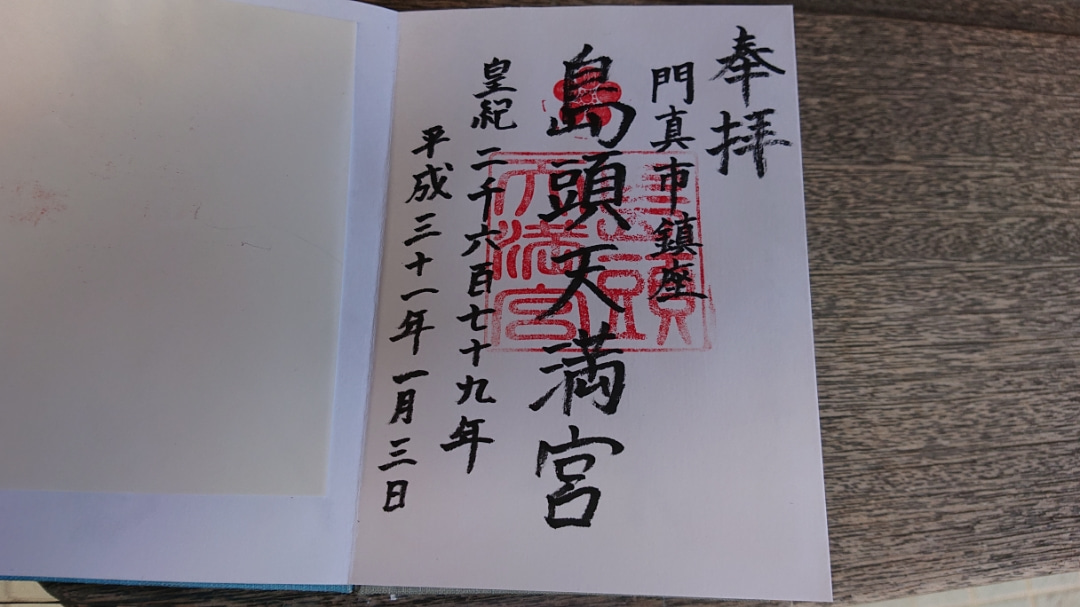 奉拝
門真市鎮座
島頭天満宮
皇紀二千六百七十九年
平成三十一年一月三日